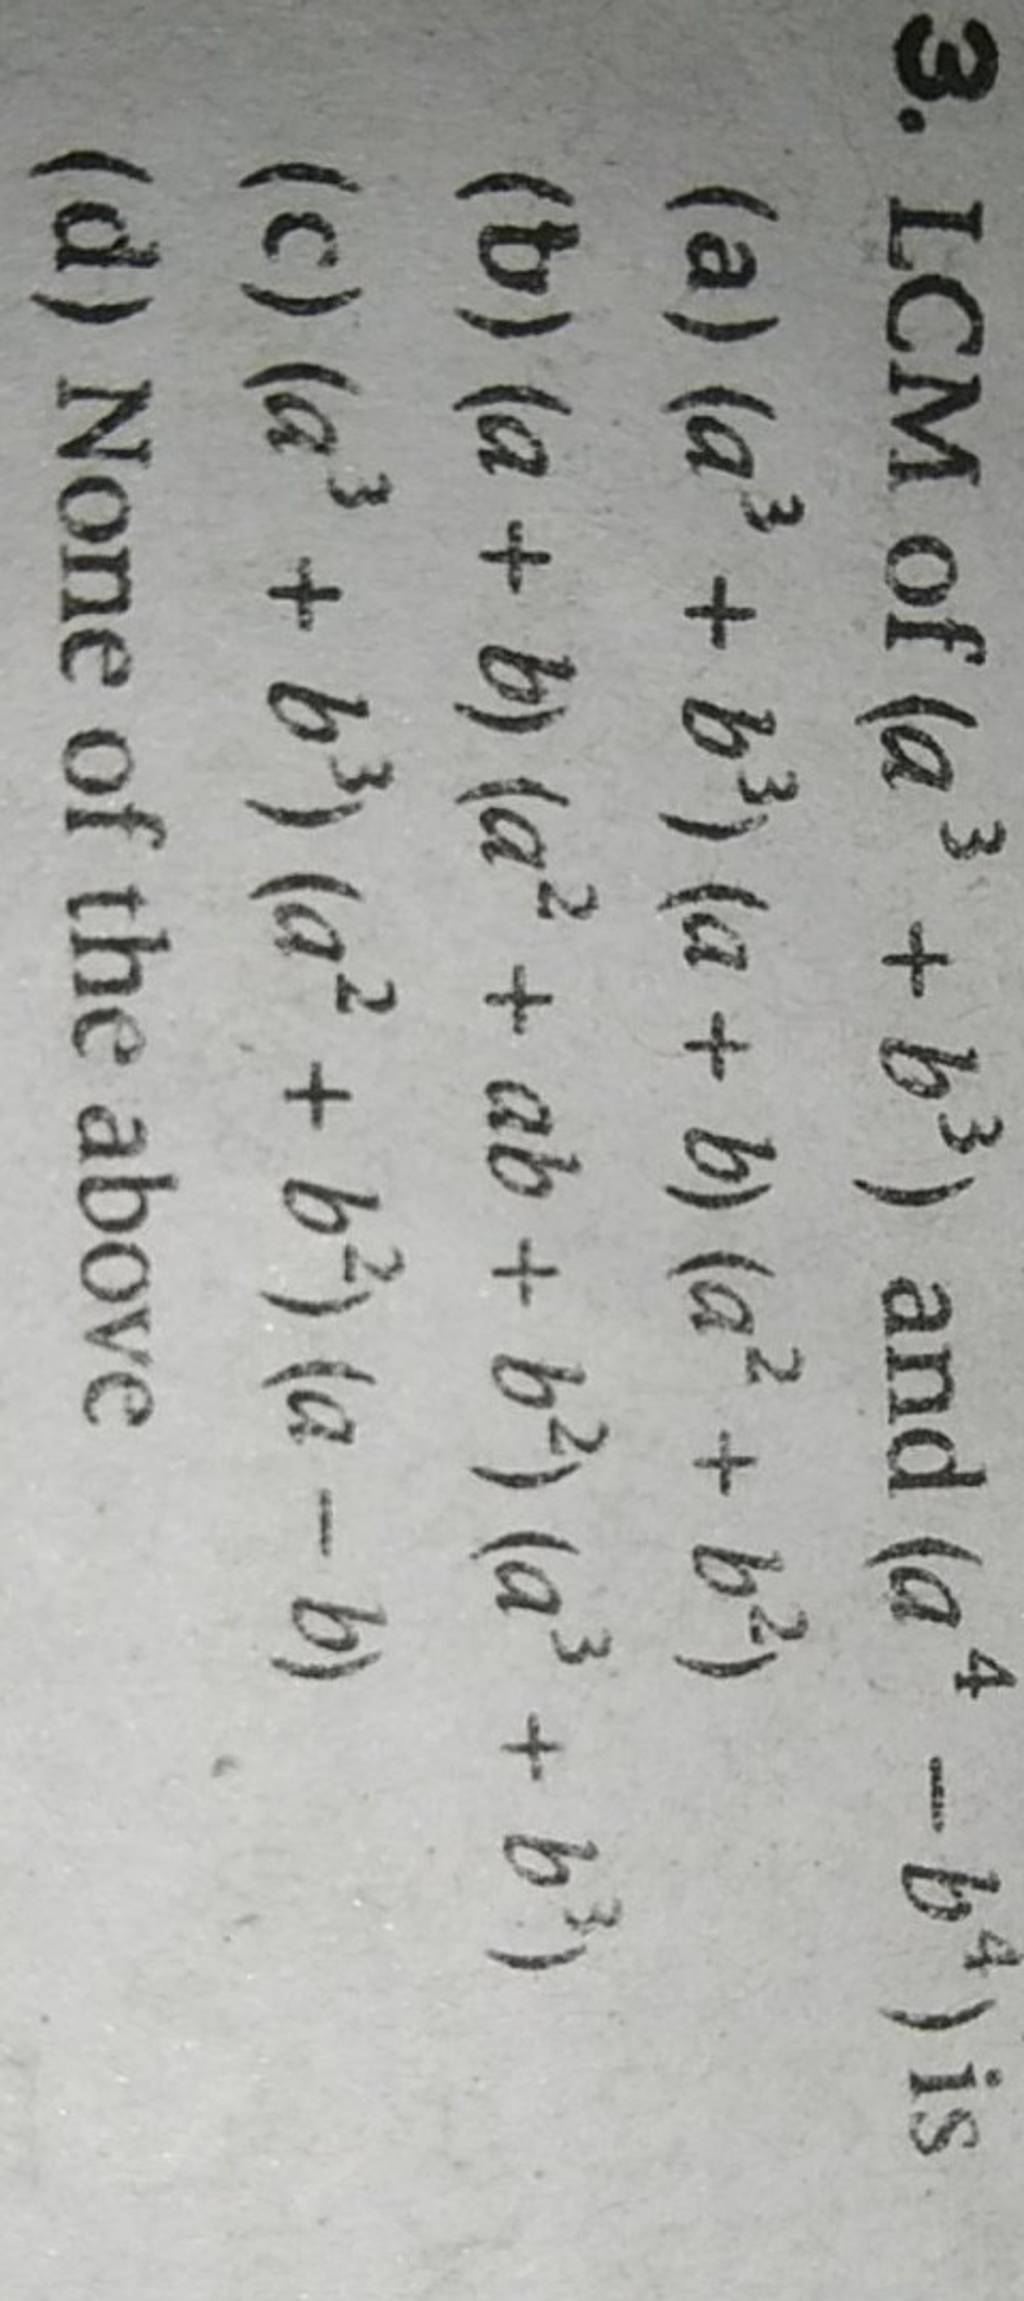 3. LCM of (a³ + b³) and (a⁴ − b⁴) is
(a) (a³ + b³) (a + b) (a² + b²)
(b) (a + b) (a² + ab + b²) (a³ + b³)
(c) (a³ + b³) (a² + b²) (a − b)
(d) None of the above